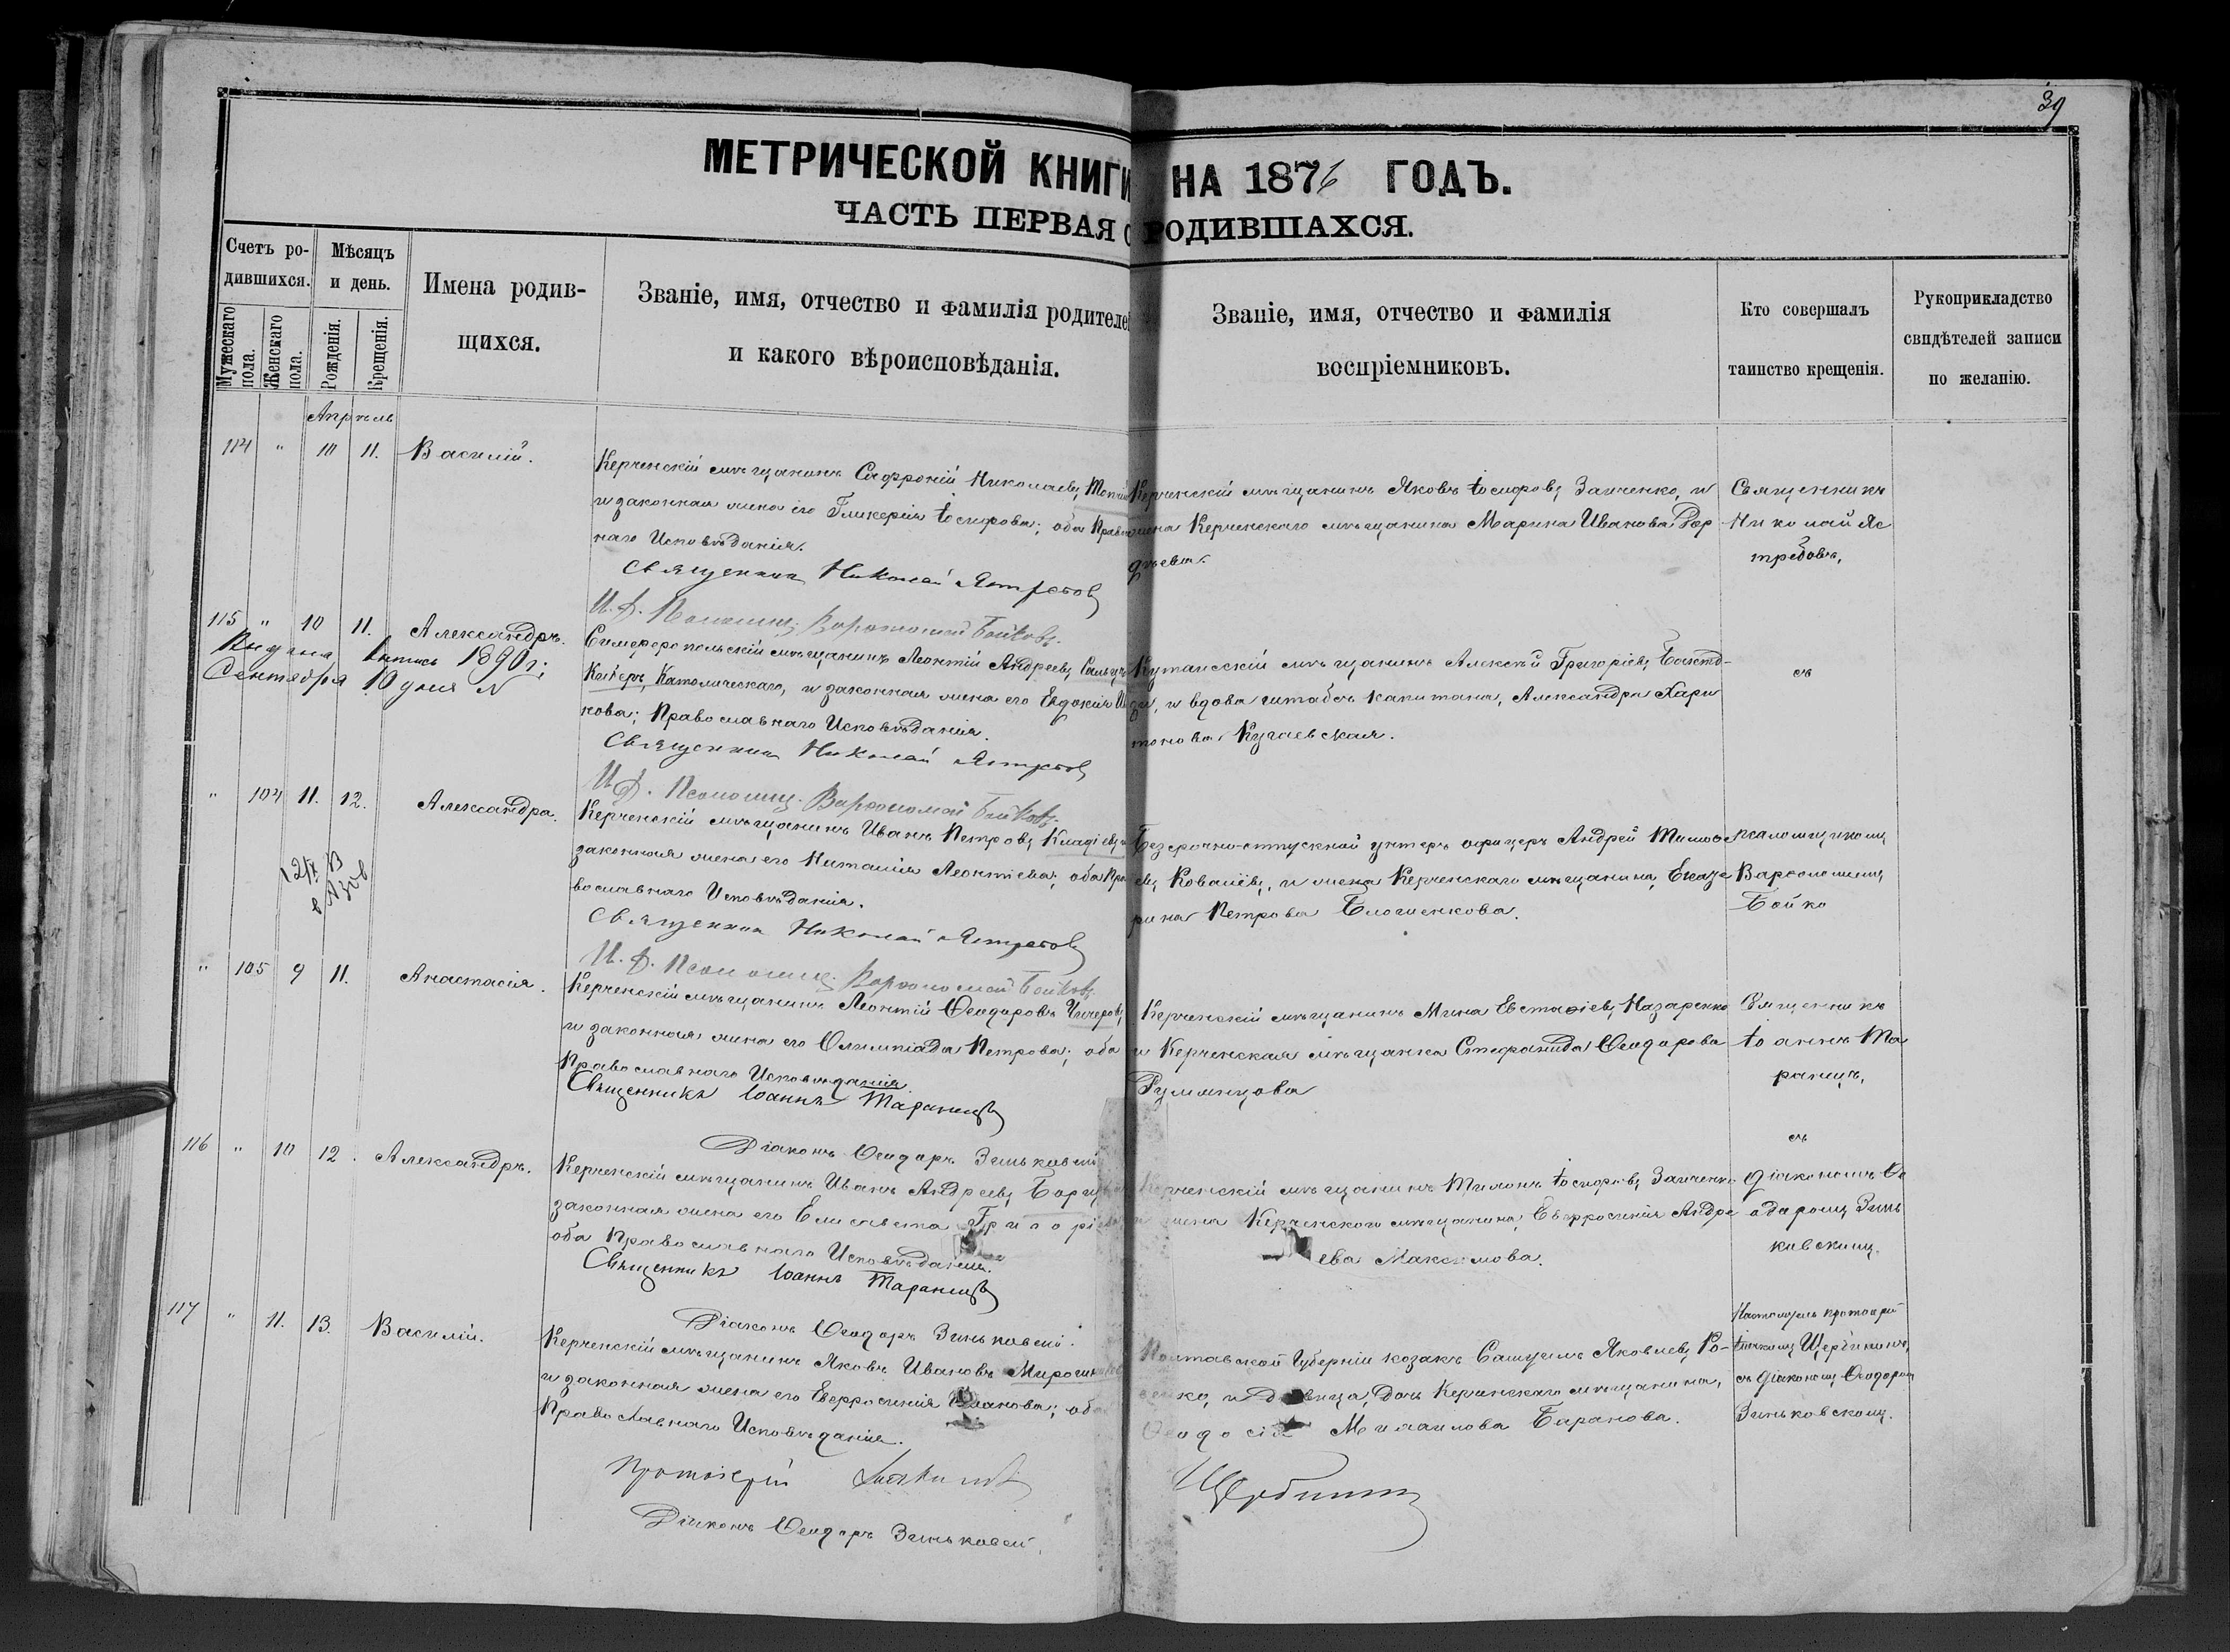 39
МЕТРИЧЕСКОЙ КНИГИ НА 1876 ГОДЪ.
ЧАСТЬ ПЕРВАЯ О РОДИВШАХСЯ.
Счетъ ро-
дившихся.
Мужескаго пола.
Женскаго пола.
Мѣсяцъ
и день.
Рожденія.
Крещенія.
Имена родив-
щихся.
Званіе, имя, отчество и фамилія родителей
и какого вѣроисповѣданія.
Званіе, имя, отчество и фамилія
воспріемниковъ.
Кто совершалъ
таинство крещенія.
Рукоприкладство
свидѣтелей записи
по желанію.
Апрѣль
114 " 10 11. Василій.
Керченскій мѣщанинъ Софроній Николаевъ
и законная жена его Гликерія Іосифова; оба Правос
наго Исповѣданія.
Священникъ Николай Ястребовъ
И. Д. Псаломщ. Варфоломей Бойковъ.
Керченскій мѣщанинъ Яковъ Іосифовъ Заиченко, и
жена Керченскаго мѣщанина Марина Иванова Гор
дѣева.
Священникъ
Николай Яс
требовъ,
115 " 10 11. Александръ.
Выдана 1890 г.
Сентября 10 дня N
Симферопольскій мѣщанинъ Леонтій Андреевъ
Католическаго, и законная жена его Евдокія
кова; Православнаго Исповѣданія.
Священникъ Николай Ястребовъ
И. Д. Псаломщ. Варфоломей Бойковъ.
Кутаисскій мѣщанинъ Алексѣй Григоріевъ
и вдова штабсъ капитана, Александра Хари
тонова Кугаевская.
съ
" 104 11. 12. Александра.
Керченскій мѣщанинъ Иванъ Петровъ
законная жена его Наталія Леонтіева; оба Пра
вославнаго Исповѣданія.
Священникъ Николай Ястребовъ
И. Д. Псаломщ. Варфоломей Бойковъ.
Безсрочно-отпускной унтеръ офицеръ Андрей Тимофе
евъ Ковалёвъ, и жена Керченскаго мѣщанина, Екате
рина Петрова
псаломщикомъ
Варфоломеемъ
Бойко
" 105 9 11. Анастасія.
Керченскій мѣщанинъ Леонтій Ѳеодоровъ
и законная жена его Олимпіада Петрова; оба
Православнаго Исповѣданія.
Священникъ Іоаннъ Таранецъ
Діаконъ Ѳеодоръ Зиньковскій
Керченскій мѣщанинъ Мина Евстафіевъ Назаренко
и Керченская мѣщанка Стефанида Ѳеодорова
Румянцова
Священникъ
Іоаннъ Та
ранецъ,
съ
116 " 10 12. Александръ.
Керченскій мѣщанинъ Иванъ Андреевъ
законная жена его Елисавета Григоріева
оба Православнаго Исповѣданія.
Священникъ Іоаннъ Таранецъ
Діаконъ Ѳеодоръ Зиньковскій.
Керченскій мѣщанинъ Тимонъ Іосифовъ Заиченко
и жена Керченскаго мѣщанина, Евфросинія Андре
ева Максимова.
діакономъ Ѳе
одоромъ Зинь
ковскимъ.
117 " 11. 13. Василій.
Керченскій мѣщанинъ Яковъ Ивановъ
и законная жена его Евфросинія Иванова; оба
Православнаго Исповѣданія.
Протоіерей Щербининъ
Діаконъ Ѳеодоръ Зиньковскій.
Полтавской Губерніи козакъ Самуилъ Яковлевъ
и дѣвица, дочь Керченскаго мѣщанина,
Ѳеодосія Михаилова Баранова.
Настоятель протоіерей
Щербининъ,
съ діакономъ Ѳеодоромъ
Зиньковскимъ.